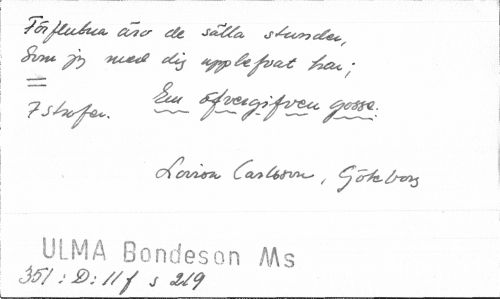 Förflutna äro de sälla stunder,
Som jg med dig upplefvat har;
=
7 strofer. En öfvergifven gosse.
Lovisa Carlsson, Göteborg
ULMA Bondeson Ms
351 : D: 11 f s 219